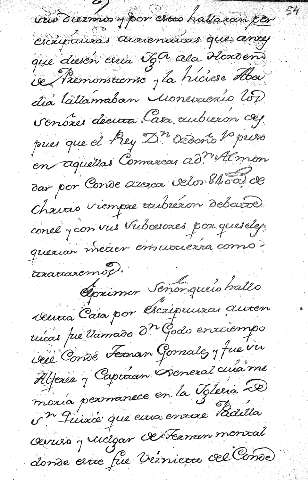 54
sus diezmos, y por esto hallaran por
escripturas autenticas que antes
que diesen esta Ygª. a la Horden
de Premonstense, y la hiciese Aba
dia la llamaban Monesterio, los
Señores de esta Casa subieron des
pues que el Rey Dn. Ordoño 1º puso
en aquellas Comarcas a dn. Almon
dar por Conde acerca de los 840 as. de
christo siempre tubieron debate
con el y con sus subcesores por que seles
querian meter en su tierra como
trataremos.
El primer Señor que io hallo
de esta Casa por Escripturas auten
ticas fue llamado dn. Godo en tiempo
de el Conde Fernan Gonzalez, y fue su
Alferez y Capitan General cuia me
moria permanece en la Iglesia de
Sn. Quirce que esta entre Padilla
de suso y Melgar de Fernan mental
donde este fue Veinticu del Conde